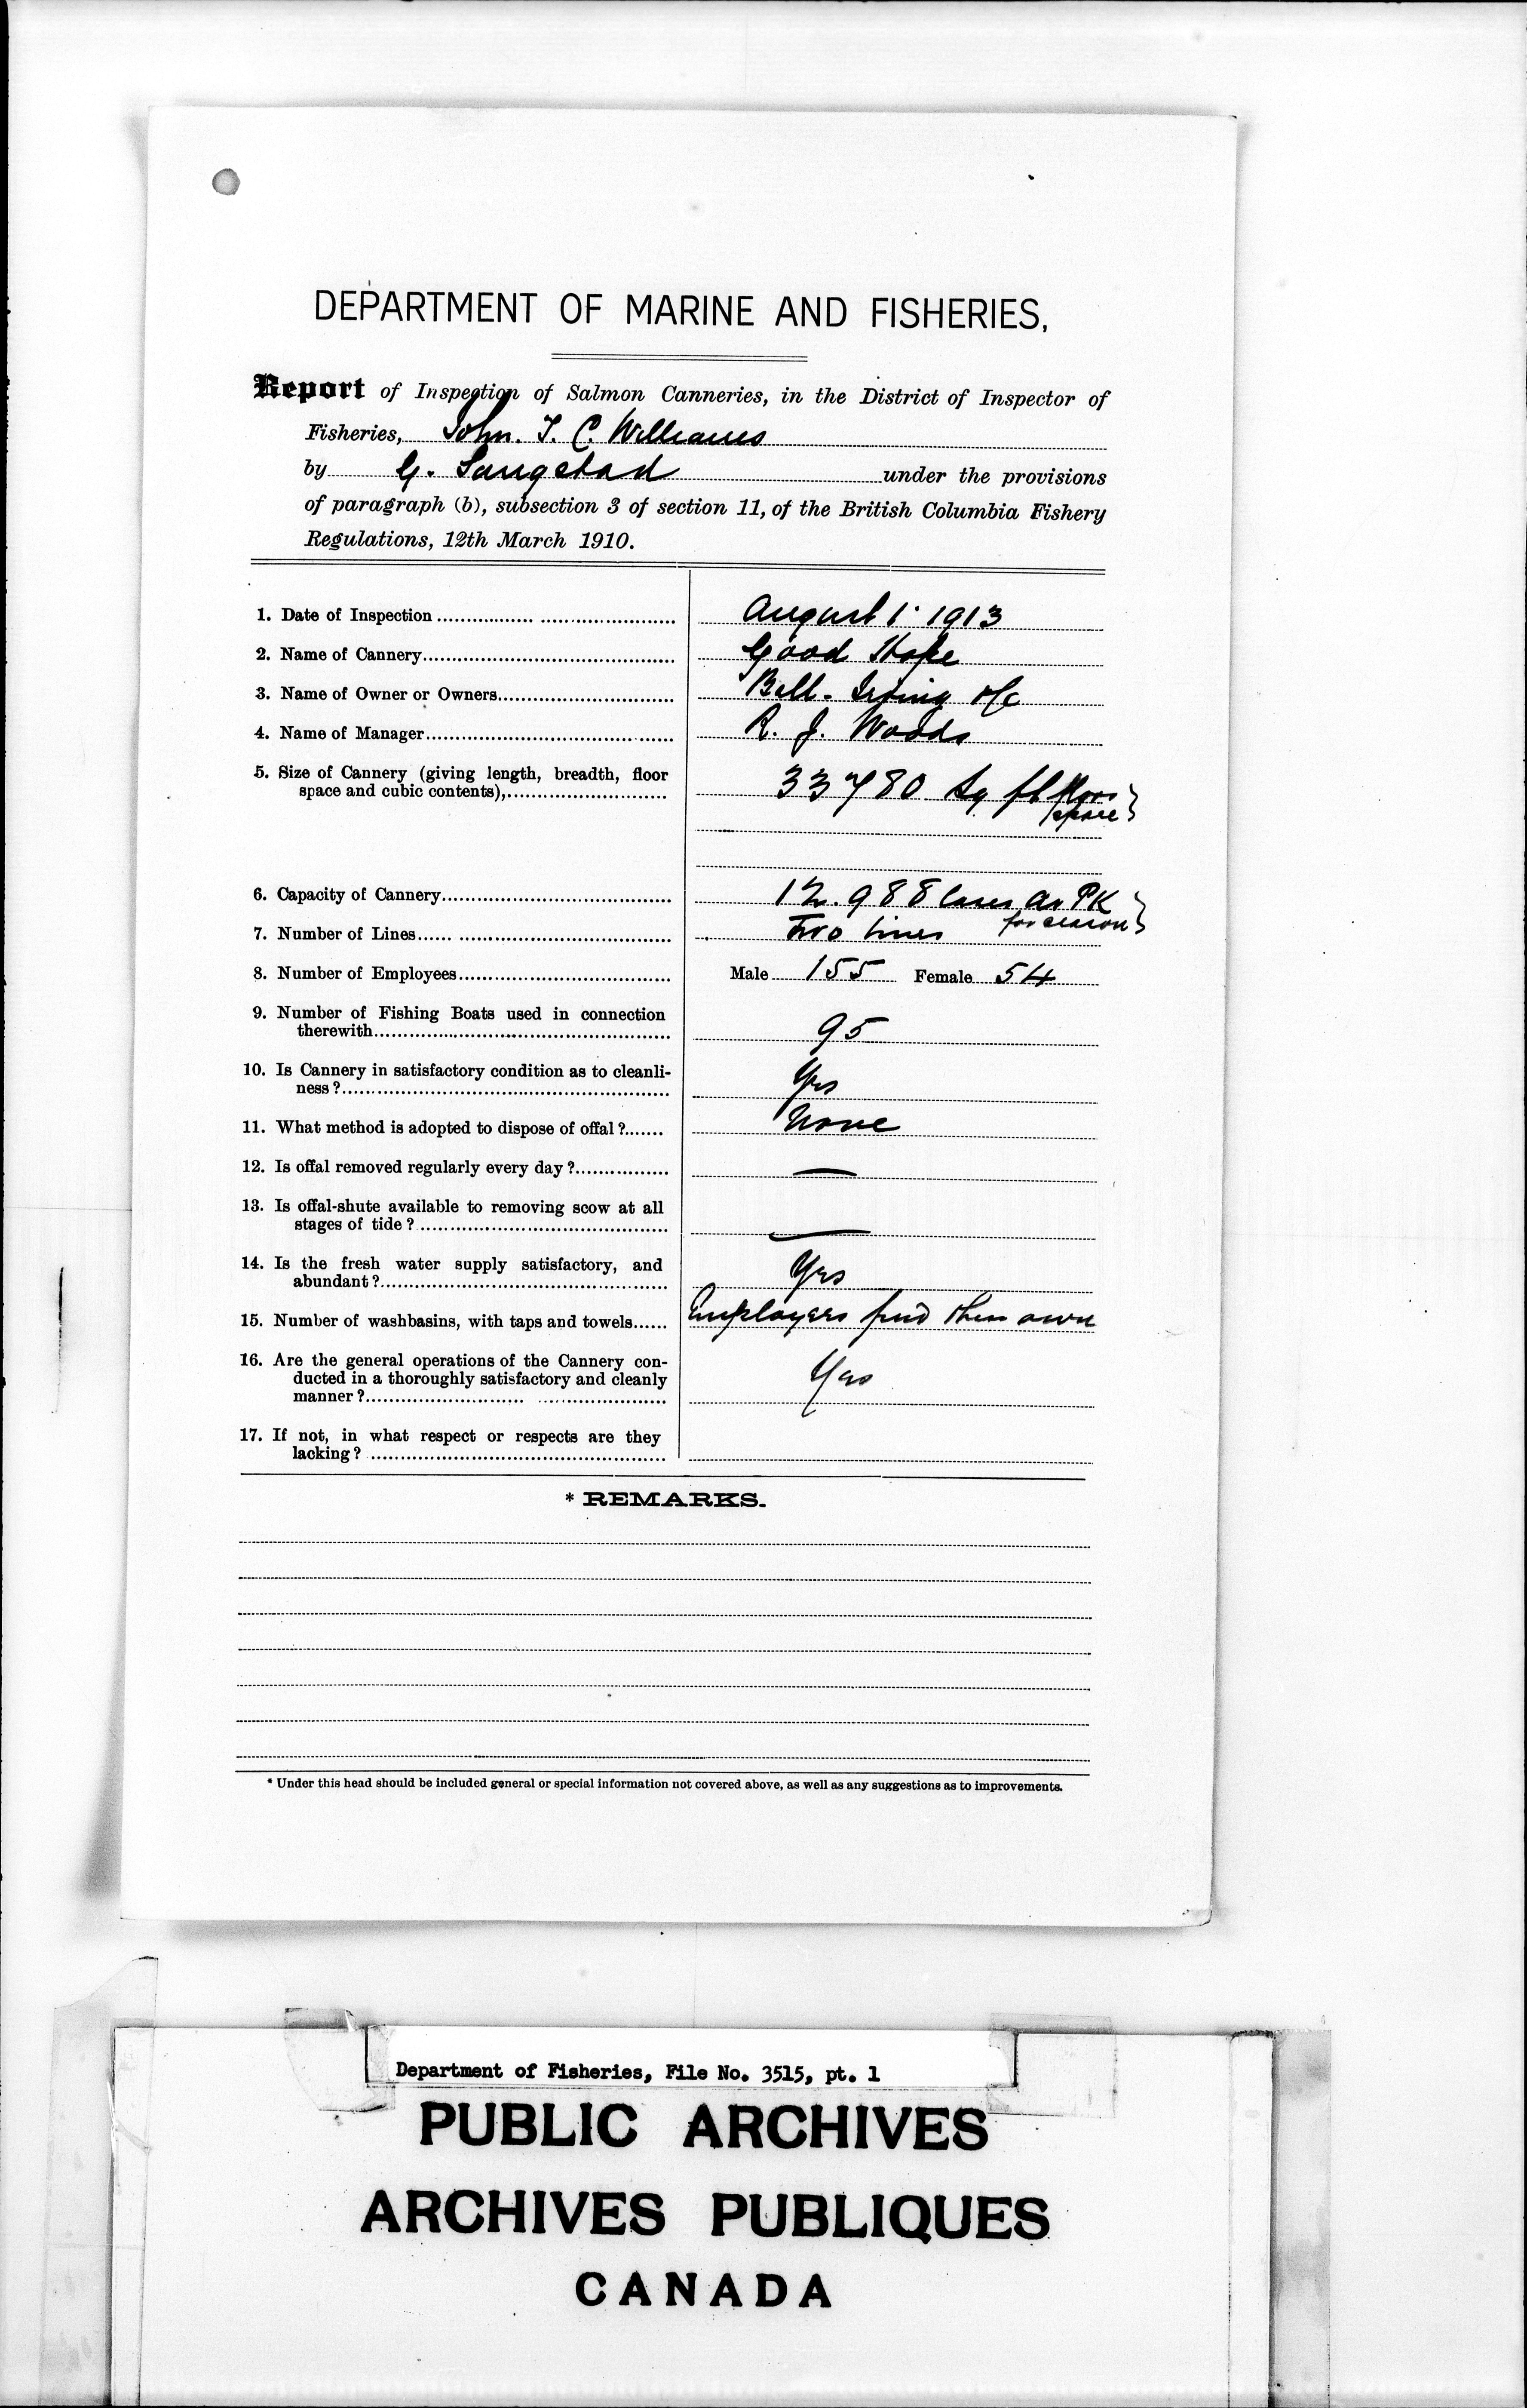 DEPARTMENT OF MARINE AND FISHERIES,
Report of Inspection of Salmon Canneries, in the District of Inspector of
Fisheries, John. T. C. Williams
by G. Saugstad under the provisions
of paragraph (b), subsection 3 of section 11, of the British Columbia Fishery
Regulations, 12th March 1910.
1. Date of Inspection August 1 1913
2. Name of Cannery Good Hope
3. Name of Owner or Owners Bell-Irving
4. Name of Manager R. J. Woods
5. Size of Cannery (giving length, breadth, floor
space and cubic contents), 33780 Sq ft floor
space
6. Capacity of Cannery 12.988 Cases Av PK
for season
7. Number of Lines Two Lines
8. Number of Employees Male 155 Female 54
9. Number of Fishing Boats used in connection
therewith 95
10. Is Cannery in satisfactory condition as to cleanli-
ness? Yes
11. What method is adopted to dispose of offal? None
12. Is offal removed regularly every day? —
13. Is offal-shute available to removing scow at all
stages of tide? —
14. Is the fresh water supply satisfactory, and
abundant? Yes
15. Number of washbasins, with taps and towels find their own
16. Are the general operations of the Cannery con-
ducted in a thoroughly satisfactory and cleanly
manner? Yes
17. If not, in what respect or respects are they
lacking?
* REMARKS.
* Under this head should be included general or special information not covered above, as well as any suggestions as to improvements.
Department of Fisheries, File No. 3515, pt. 1
PUBLIC ARCHIVES
ARCHIVES PUBLIQUES
CANADA